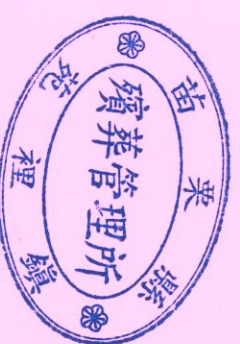 苗栗縣苑裡鎮
殯葬管理所